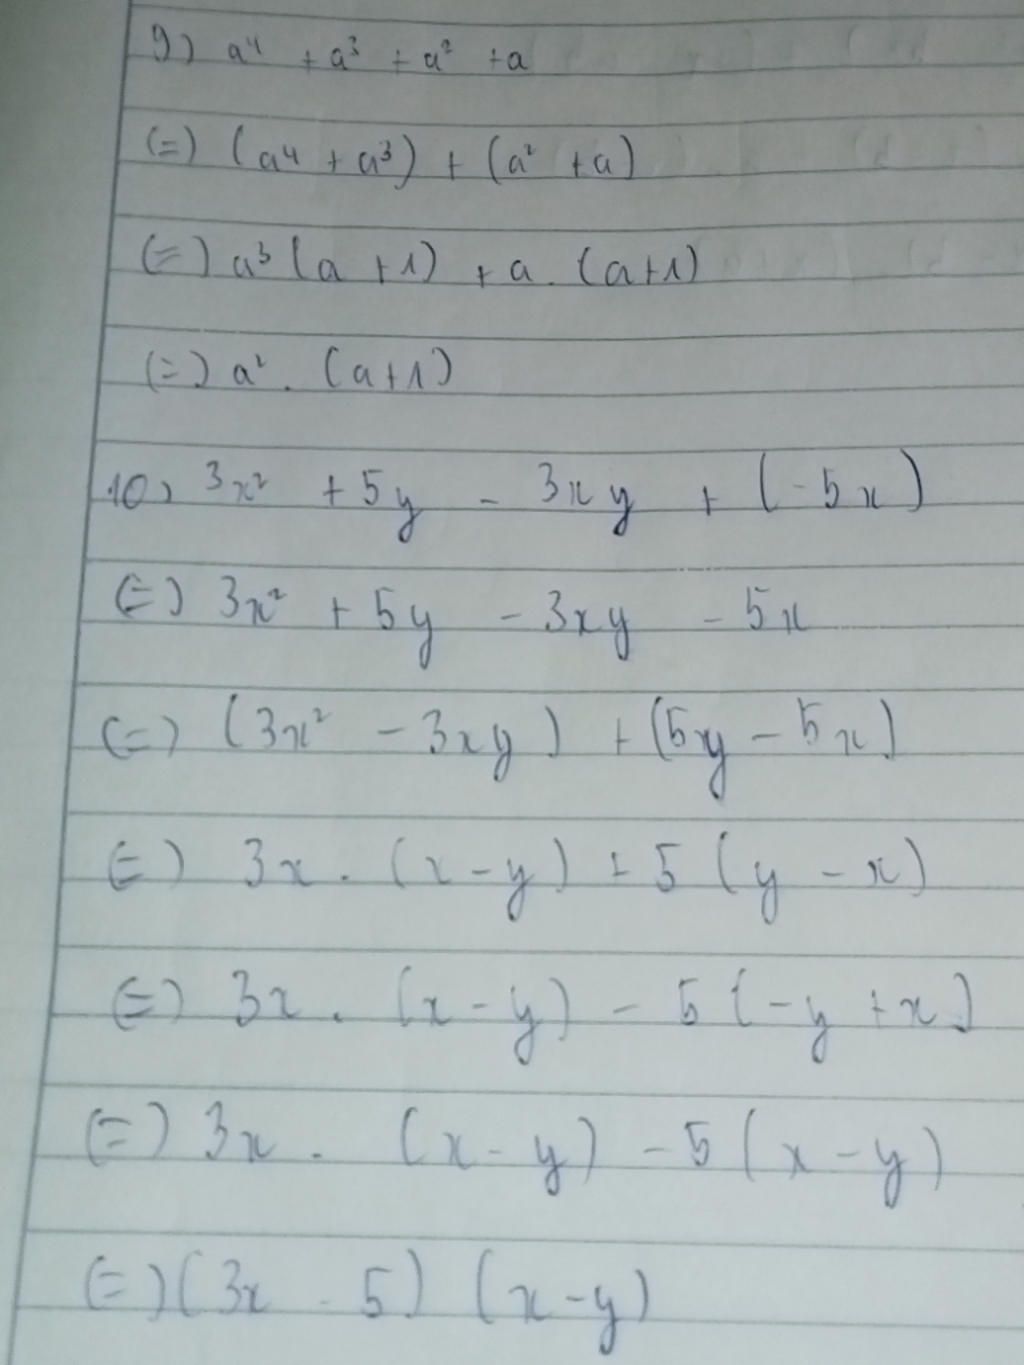 9) a⁴ + a³ + a² + a
(=) (a⁴ + a³) + (a² + a)
(=) a³ (a + 1) + a . (a+1)
(=) a² . (a+1)
10) 3x² + 5y - 3xy + (-5x)
(=) 3x² + 5y - 3xy - 5x
(=) (3x² - 3xy) + (5y - 5x)
(=) 3x . (x - y) + 5 (y - x)
(=) 3x . (x - y) - 5 (-y + x)
(=) 3x . (x - y) - 5 (x - y)
(=) (3x - 5) (x - y)